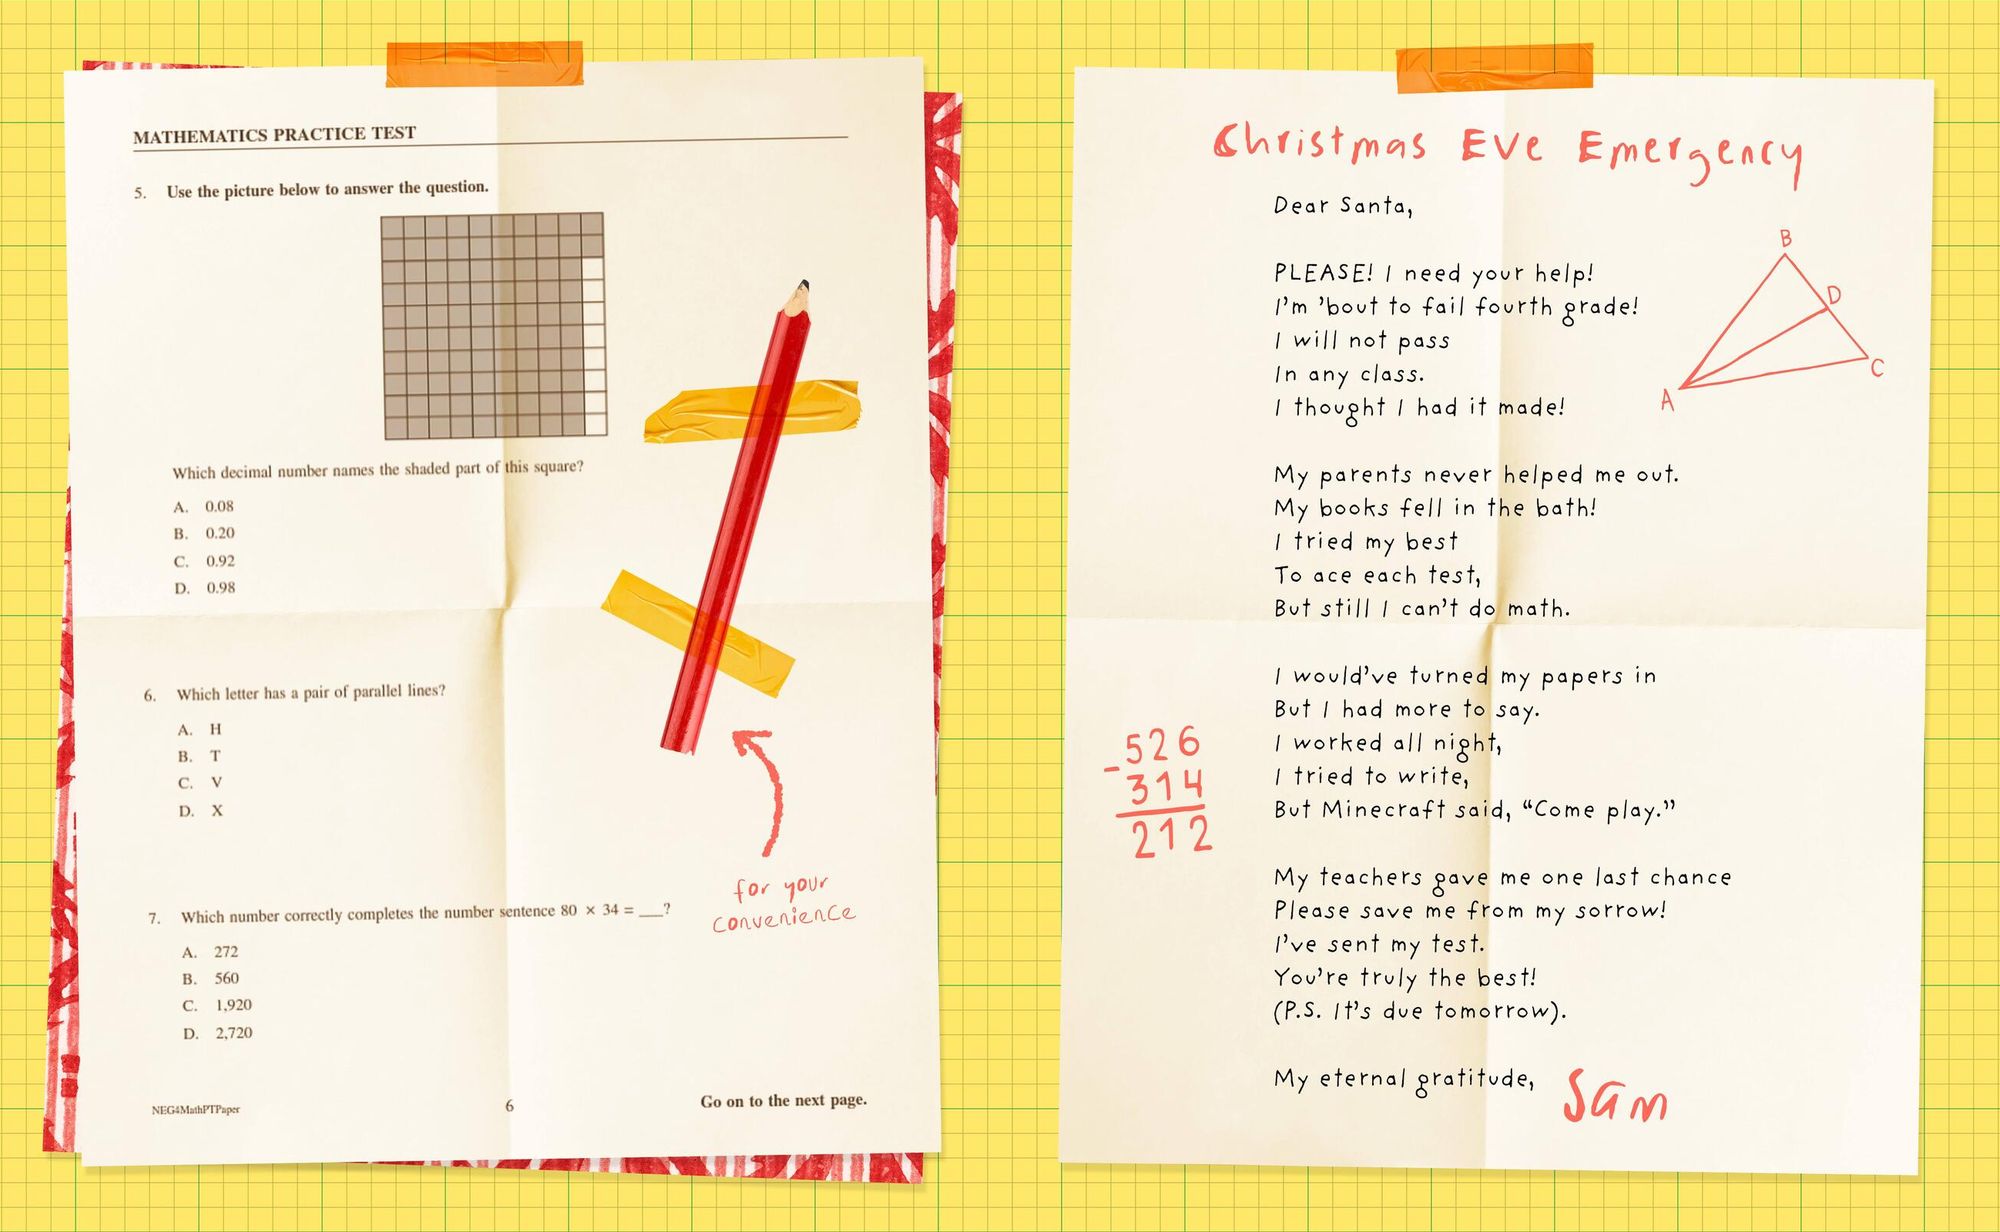 MATHEMATICS PRACTICE TEST
5. Use the picture below to answer the question.
Which decimal number names the shaded part of this square?
A. 0.08
B. 0.20
C. 0.92
D. 0.98
6. Which letter has a pair of parallel lines?
A. H
B. T
C. V
D. X
7. Which number correctly completes the number sentence 80 × 34 = __?
A. 272
B. 560
C. 1,920
D. 2,720
for your
convenience
NEG4MathPTPaper
6
Go on to the next page.
Christmas Eve Emergency
Dear Santa,
PLEASE! I need your help!
I'm 'bout to fail fourth grade!
I will not pass
In any class.
I thought I had it made!
B
D
C
A
My parents never helped me out.
My books fell in the bath!
I tried my best
To ace each test,
But still I can't do math.
I would've turned my papers in
But I had more to say.
I worked all night,
I tried to write,
But Minecraft said, “Come play.”
-526
314
212
My teachers gave me one last chance
Please save me from my sorrow!
I've sent my test.
You're truly the best!
(P.S. It's due tomorrow).
My eternal gratitude,
Sam